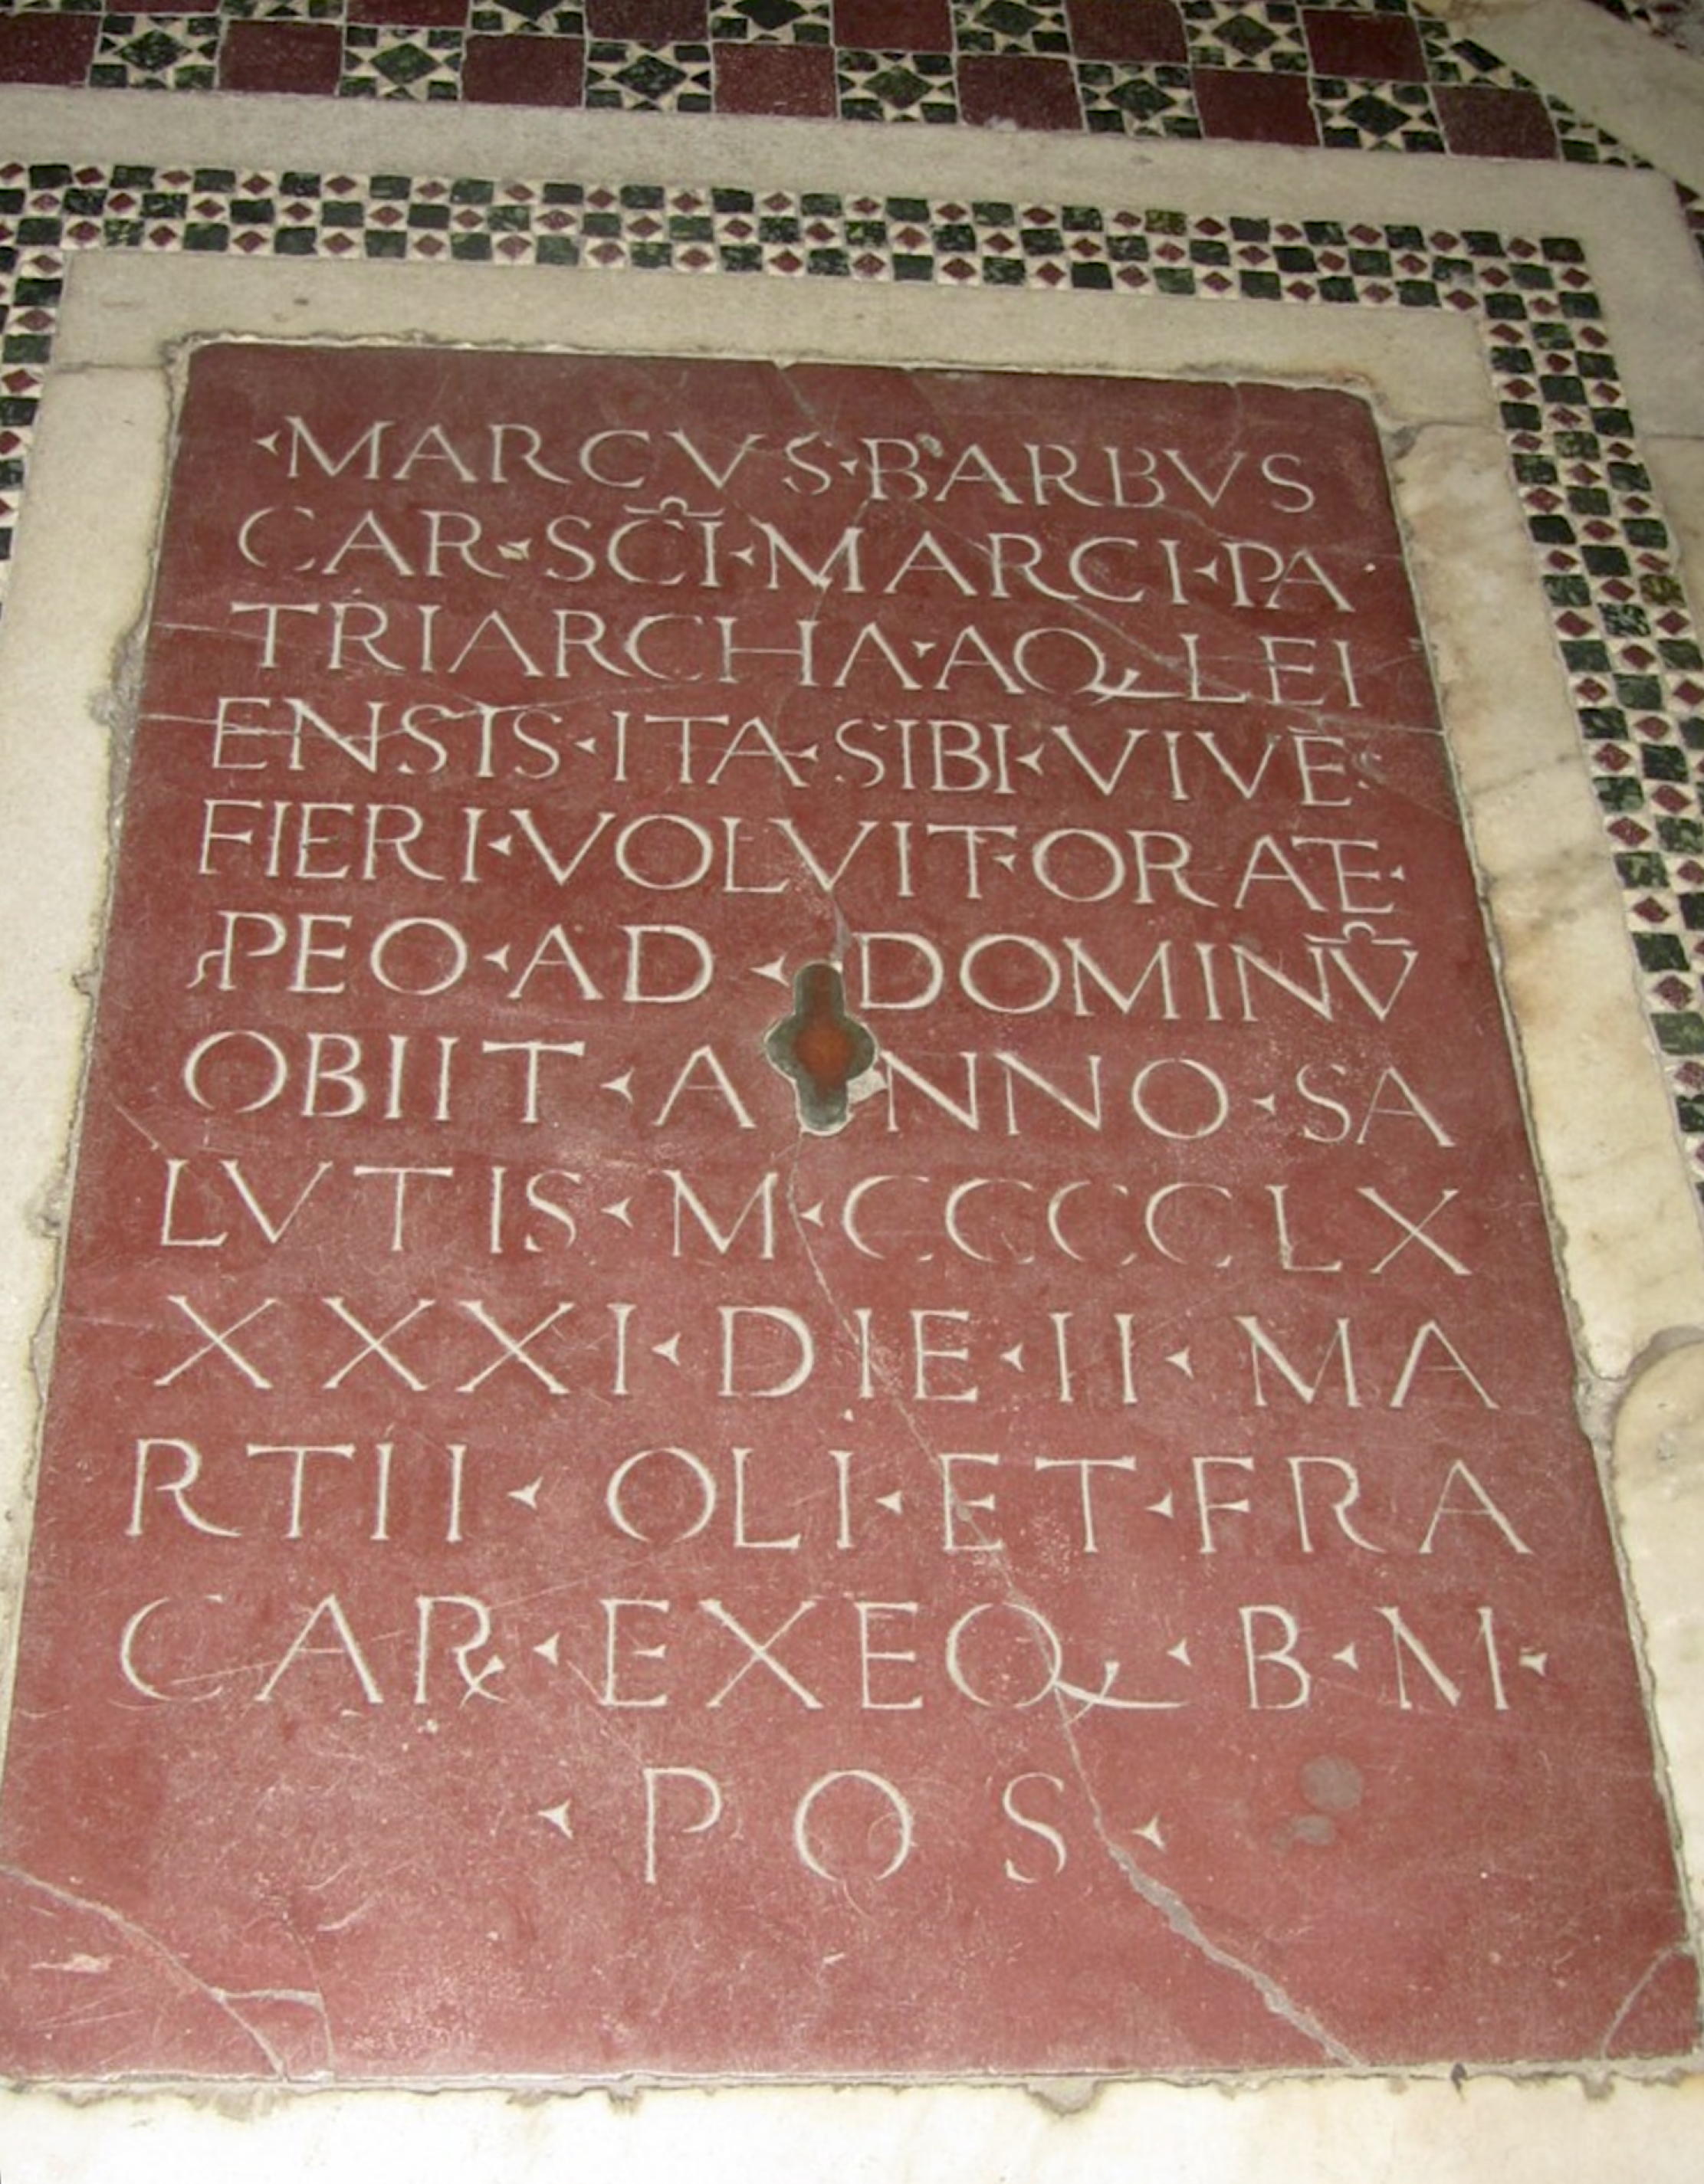 ·MARCVS·BARBVS
CAR·SC̄I·MARCI·PA
TRIARCHA·AQLEI
ENSIS·ITA·SIBI·VIVĒS
FIERI·VOLVIT·ORATE·
PEO·AD·DOMINV̄
OBIIT·ANNO·SA
LVTIS·M·CCCCLX
XXXI·DIE·II·MA
RTII·OLI·ET·FRA
CAR·EXEQ·B·M·
·POS·